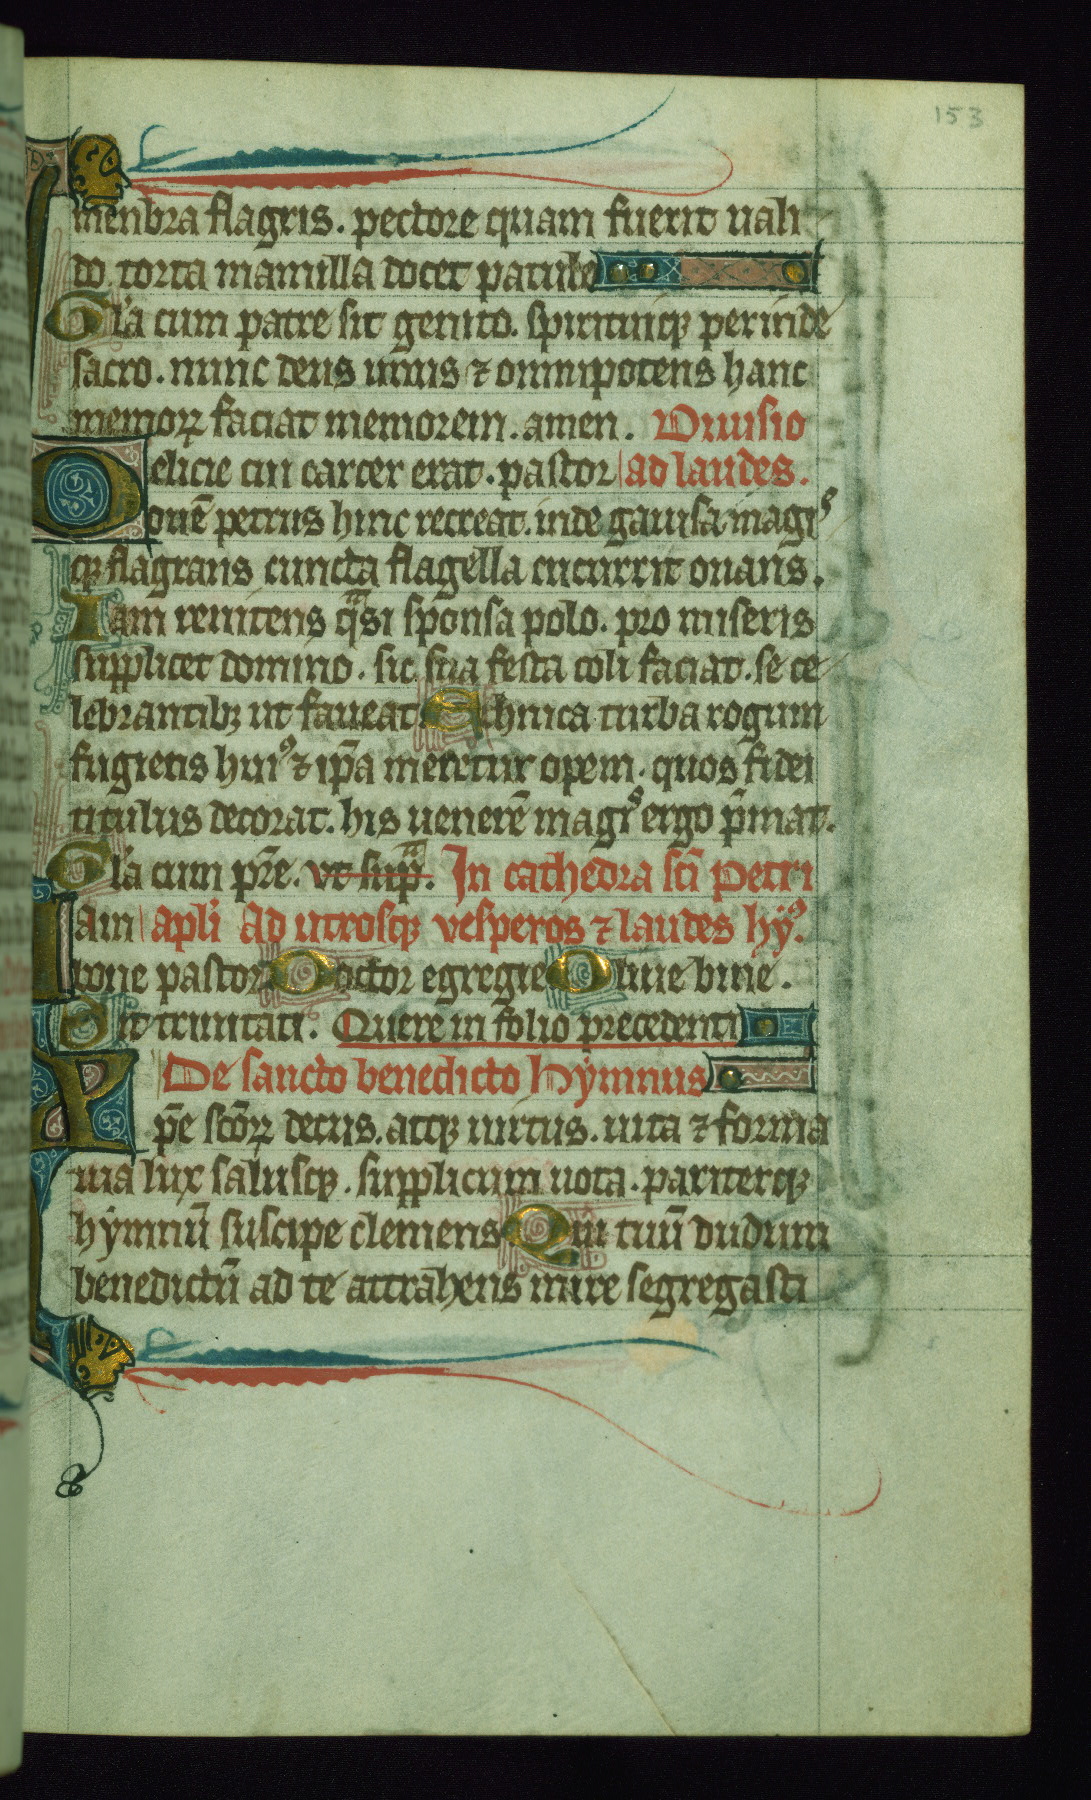 153
menbra flagris. pectore quam fuerit uali
do. torta mamilla docet patule
Gl'a cum patre sit genito. spirituiqꝫ perinde
sacro. nunc deus unus ⁊ omnipotens hanc
memorꝝ faciat memorem. amen. Diuisio
Delicie cui carcer erat. pastor ad laudes.
ouē petrus hinc recreat. inde gauisa magis
qꝫ flagrans cuncta flagella cucurrit ouans.
Iam renitens qͣsi sponsa polo. pro miseris
supplicet domino. sic sua festa coli faciat. se ce
lebrantibꝫ ut faueat Ethnica turba rogum
fugiens huiꝰ ⁊ ip̄a meretur opem. quos fidei
titulus decorat. his uenerē magꝭ ergo p̄mat.
Gl'a cum pr̄e. vt supͣ. In cathedra sc̄i Petri
Iam apl'i Ad utrosqꝫ vesperos ⁊ laudes hyꝰ.
bone pastor Doctor egregie Oliue bine.
Sit trinitati. Quere in folio precedenti
De sancto benedicto Hymnus
Ap̄e sc̄oꝝ decus. atqꝫ uirtus. uita ⁊ forma
uia lux salusqꝫ. supplicum uota. pariterqꝫ
hymnū suscipe clemens Qui tuū dudum
benedictū ad te attrahens mire segregasti